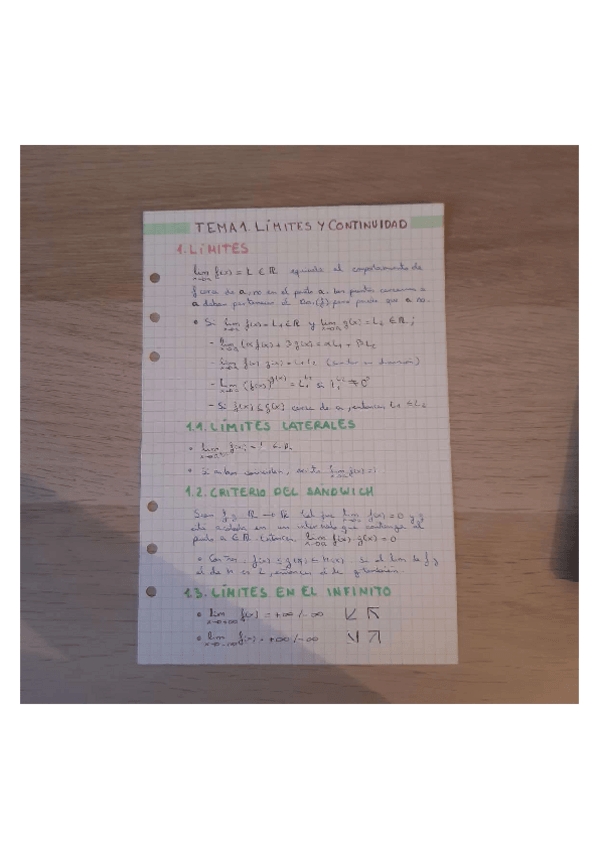 TEMA 1. LÍMITES Y CONTINUIDAD
1. LÍMITES
lim f(x) = L ∈ ℝ equivale al comportamiento de
f cerca de a, no en el punto a. Los puntos cercanos a
a deben pertenecer al Dom(f) pero puede que a no.
• Si lim f(x) = L₁ ∈ ℝ y lim g(x) = L₂ ∈ ℝ;
- lim (α f(x) + β g(x)) = αL₁ + βL₂
- lim f(x) g(x) = L₁L₂
- lim (f(x))^g(x) = L₁^L₂ si
- Si f(x) ≤ g(x) cerca de a, entonces L₁ ≤ L₂
1.1. LÍMITES LATERALES
• lim f(x) = L ∈ ℝ
• Si ambos coinciden, existe lim f(x) =
1.2. CRITERIO DEL SANDWICH
Sean f, g: ℝ → ℝ tal que lim f(x) = 0 y g
está acotada en un intervalo que contenga al
punto a ∈ ℝ. Entonces, lim f(x) · g(x) = 0
• f(x) ≤ g(x) ≤ h(x) si el lim de f y
el de h es L, entonces el de g también.
1.3. LÍMITES EN EL INFINITO
• lim x→+∞ f(x) = +∞ / -∞
• lim x→-∞ f(x) = +∞ / -∞